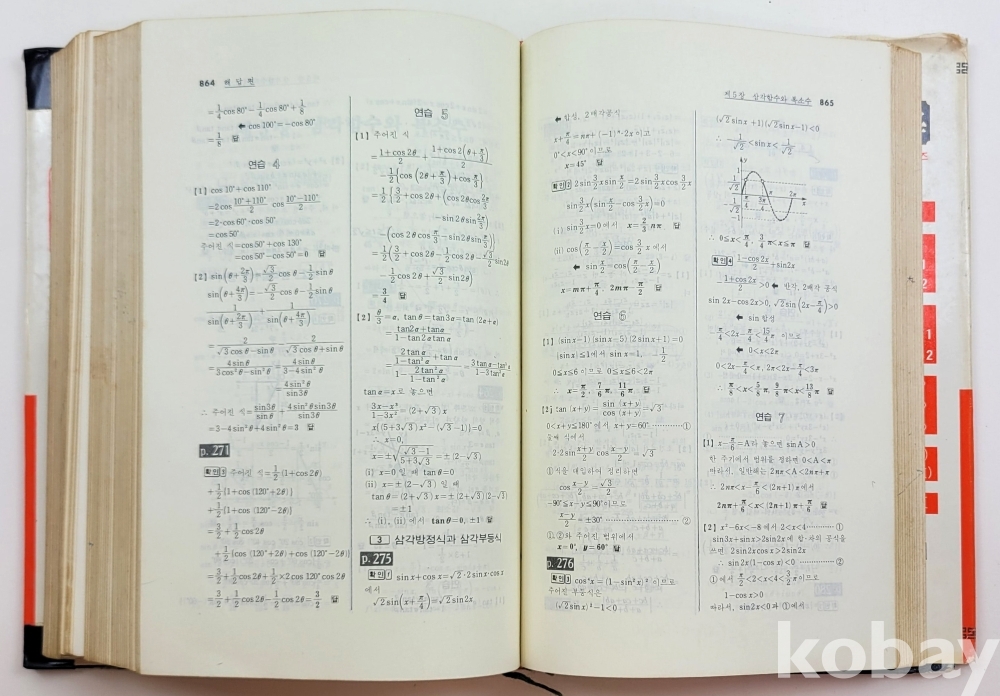 864 해 답 편
=1/4 cos 80°-1/4 cos 80°+1/8
← cos 100°=-cos 80°
=1/8 답
연습 4
[1] cos 10°+cos 110°
=2cos (10°+110°)/2 cos (10°-110°)/2
=2·cos 60°·cos 50°
=cos 50°
주어진 식=cos 50°+cos 130°
=cos 50°-cos 50°=0 답
[2] sin(θ+2π/3)=√3/2 cos θ-1/2 sin θ
sin(θ+4π/3)=-√3/2 cos θ-1/2 sin θ
1/sin(θ+2π/3)+1/sin(θ+4π/3)
=2/(√3 cos θ-sin θ)-2/(√3 cos θ+sin θ)
=4sin θ/(3cos²θ-sin²θ)=4sin θ/(3-4sin²θ)
=4sin²θ/sin3θ
∴ 주어진 식=sin3θ/sin θ+4sin²θ sin3θ/sin3θ
=3-4sin²θ+4sin²θ=3 답
p. 271
주어진 식=1/2(1+cos 2θ)
+1/2{1+cos (120°+2θ)}
+1/2{1+cos (120°-2θ)}
=3/2+1/2 cos 2θ
+1/2{cos (120°+2θ)+cos (120°-2θ)}
=3/2+1/2 cos 2θ+1/2×2 cos 120° cos 2θ
=3/2+1/2 cos 2θ-1/2 cos 2θ=3/2 답
연습 5
[1] 주어진 식
=(1+cos 2θ)/2+(1+cos 2(θ+π/3))/2
-1/2{cos(2θ+π/3)+cos π/3}
=1/2{3/2+cos 2θ+(cos 2θcos 2π/3
-sin 2θsin 2π/3)
-(cos 2θcos π/3-sin 2θsin π/3)}
=1/2(3/2+cos 2θ-1/2 cos 2θ-√3/2 sin 2θ
-1/2 cos 2θ+√3/2 sin 2θ)
=3/4 답
[2] θ/3=α, tan θ=tan3α=tan (2α+α)
=(tan2α+tanα)/(1-tan2α tanα)
=(2tanα/(1-tan²α)+tanα)/(1-2tan²α/(1-tan²α))=(3tanα-tan³α)/(1-3tan²α)
tanα=x로 놓으면
(3x-x³)/(1-3x²)=(2+√3)x
x{(5+3√3)x²-(√3-1)}=0
∴ x=0,
x=±√((√3-1)/(5+3√3))=±(2-√3)
(i) x=0일 때 tanθ=0
(ii) x=±(2-√3)일 때
tanθ=(2+√3)x=±(2+√3)(2-√3)
=±1
∴ (i), (ii)에서 tanθ=0, ±1 답
3 삼각방정식과 삼각부등식
p. 275
확인1 sin x+cos x=√2·2 sin x·cos x
에서
√2 sin(x+π/4)=√2 sin 2x
제5장 삼각함수와 복소수 865
← 합성, 2배각공식
x+π/4=nπ+(-1)ⁿ·2x이고
0°<x<90°이므로
x=45° 답
확인2 2 sin 3/2 x sin x/2=2 sin 3/2 x cos 3/2 x
sin 3/2 x(sin x/2-cos 3/2 x)=0
(i) sin 3/2 x=0에서 x=2/3 nπ 답
(ii) cos(π/2-x/2)=cos 3/2 x에서
← sin x/2=cos(π/2-x/2)
x=nπ+π/4, 2nπ-π/2 답
연습 6
[1] (sin x-1)(sin x-5)(2sin x+1)=0
|sin x|≤1에서 sin x=1, -1/2
0≤x≤6이므로 0≤x≤6<2π
∴ x=π/2, 7/6 π, 11/6 π 답
[2] tan (x+y)=sin (x+y)/cos (x+y)=√3
0<x+y≤180°에서 x+y=60°. ………①
둘째 식에서
2·2 sin (x+y)/2 cos (x-y)/2=√3
①식을 대입하여 정리하면
cos (x-y)/2=√3/2
-90°≤x-y≤90°이므로
(x-y)/2=±30° ………②
①, ②와 주어진 범위에서
x=0°, y=60° 답
p. 276
확인3 cos⁴x=(1-sin²x)²이므로
주어진 부등식은
(√2 sin x)²-1<0
(√2 sin x+1)(√2 sin x-1)<0
∴ -1/√2<sin x<1/√2
y
1
1/√2
-1/√2
-1
π/4 3π/4 π 2π
x
∴ 0≤x<π/4, 3/4 π<x≤π 답
확인4 (1-cos 2x)/2+sin 2x
-(1+cos 2x)/2>0 ← 반각, 2배각 공식
sin 2x-cos 2x>0, √2 sin(2x-π/4)>0
← sin 합성
-π/4<2x-π/4<15/4 π 이므로
← 0<x<2π
0<2x-π/4<π, 2π<2x-π/4<3π
∴ π/8<x<5/8 π, 9/8 π<x<13/8 π 답
연습 7
[1] x-π/6=A라 놓으면 sin A>0
한 주기에서 범위를 정하면 0<A<π
따라서, 일반해는 2nπ<A<2nπ+π
∴ 2nπ<x-π/6<(2n+1)π에서
2nπ+π/6<x<(2n+1)π+π/6 답
[2] x²-6x<-8에서 2<x<4………①
sin3x+sin x>2sin2x에 합·차의 공식을
쓰면 2sin2xcosx>2sin2x
∴ sin2x(1-cos x)<0 ………②
①에서 π/2<2<x<4<3/2 π이므로
1-cos x>0
따라서, sin2x<0과 ①에서
kobay